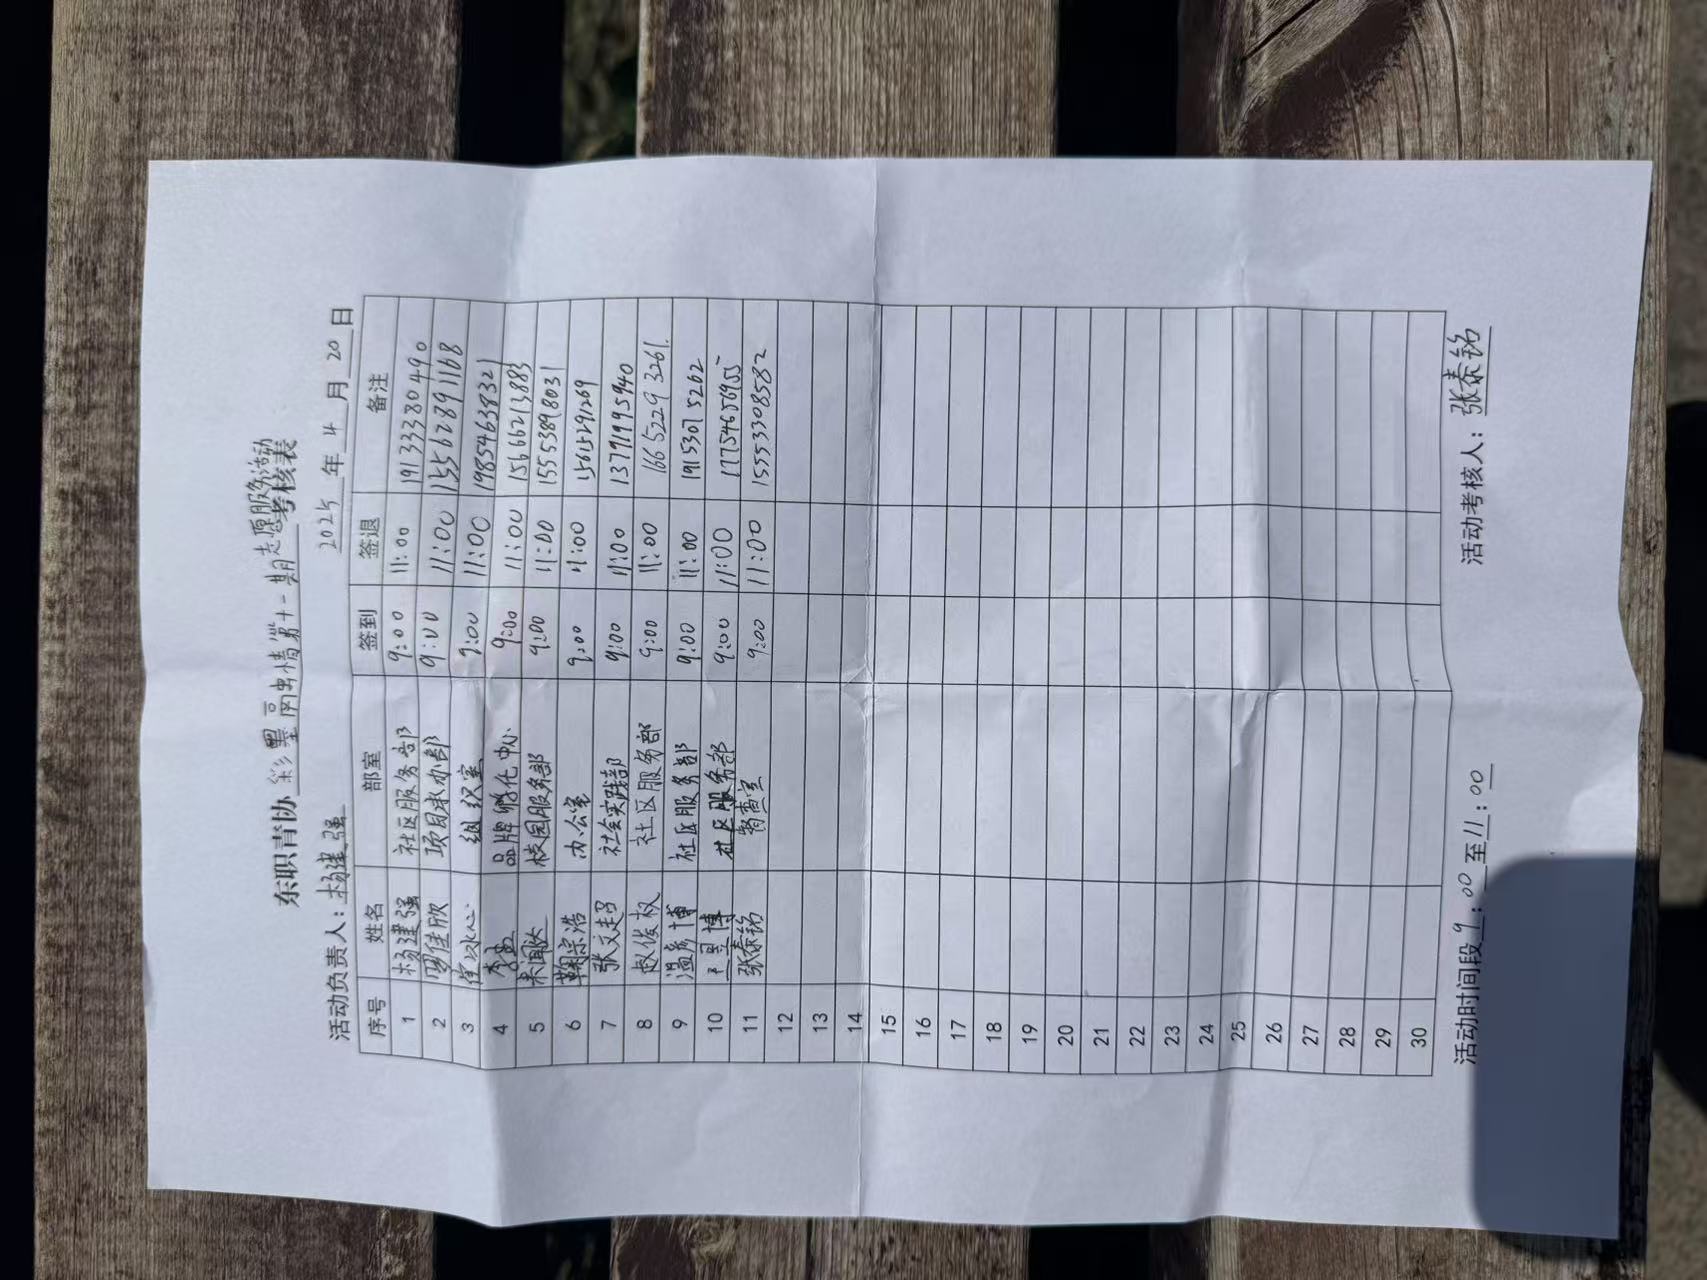 东职青协 彩墨融情第十一期志愿服务活动 考核表
活动负责人：杨建强 2025 年 4 月 20 日
序号 姓名 部室 签到 签退 备注
1 杨建强 社区服务部 9:00 11:00 19133380490
2 罗佳欣 项目承办部 9:00 11:00 15562891168
3 徐冰心 组织室 9:00 11:00 19854638321
4 李 品牌孵化中心 9:00 11:00 15666213883
5 校园服务部 9:00 11:00 15553898031
6 鞠宗浩 办公室 9:00 11:00 15615291269
7 张文超 社会实践部 9:00 11:00 13791995940
8 赵俊权 社区服务部 9:00 11:00 16652293261.
9 温彦博 社区服务部 9:00 11:00 19153015262
10 王昱博 社区服务部 9:00 11:00 17754656955
11 张泰铭 督查室 9:00 11:00 15553308582
12
13
14
15
16
17
18
19
20
21
22
23
24
25
26
27
28
29
30
活动时间段 9:00 至 11:00 活动考核人：张泰铭